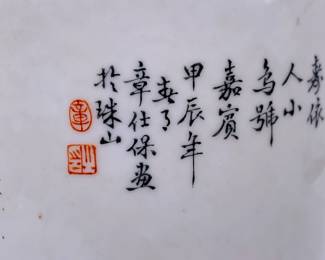 依
人小
鸟號
嘉賓
甲辰年
春月
章仕保画
於珠山
章